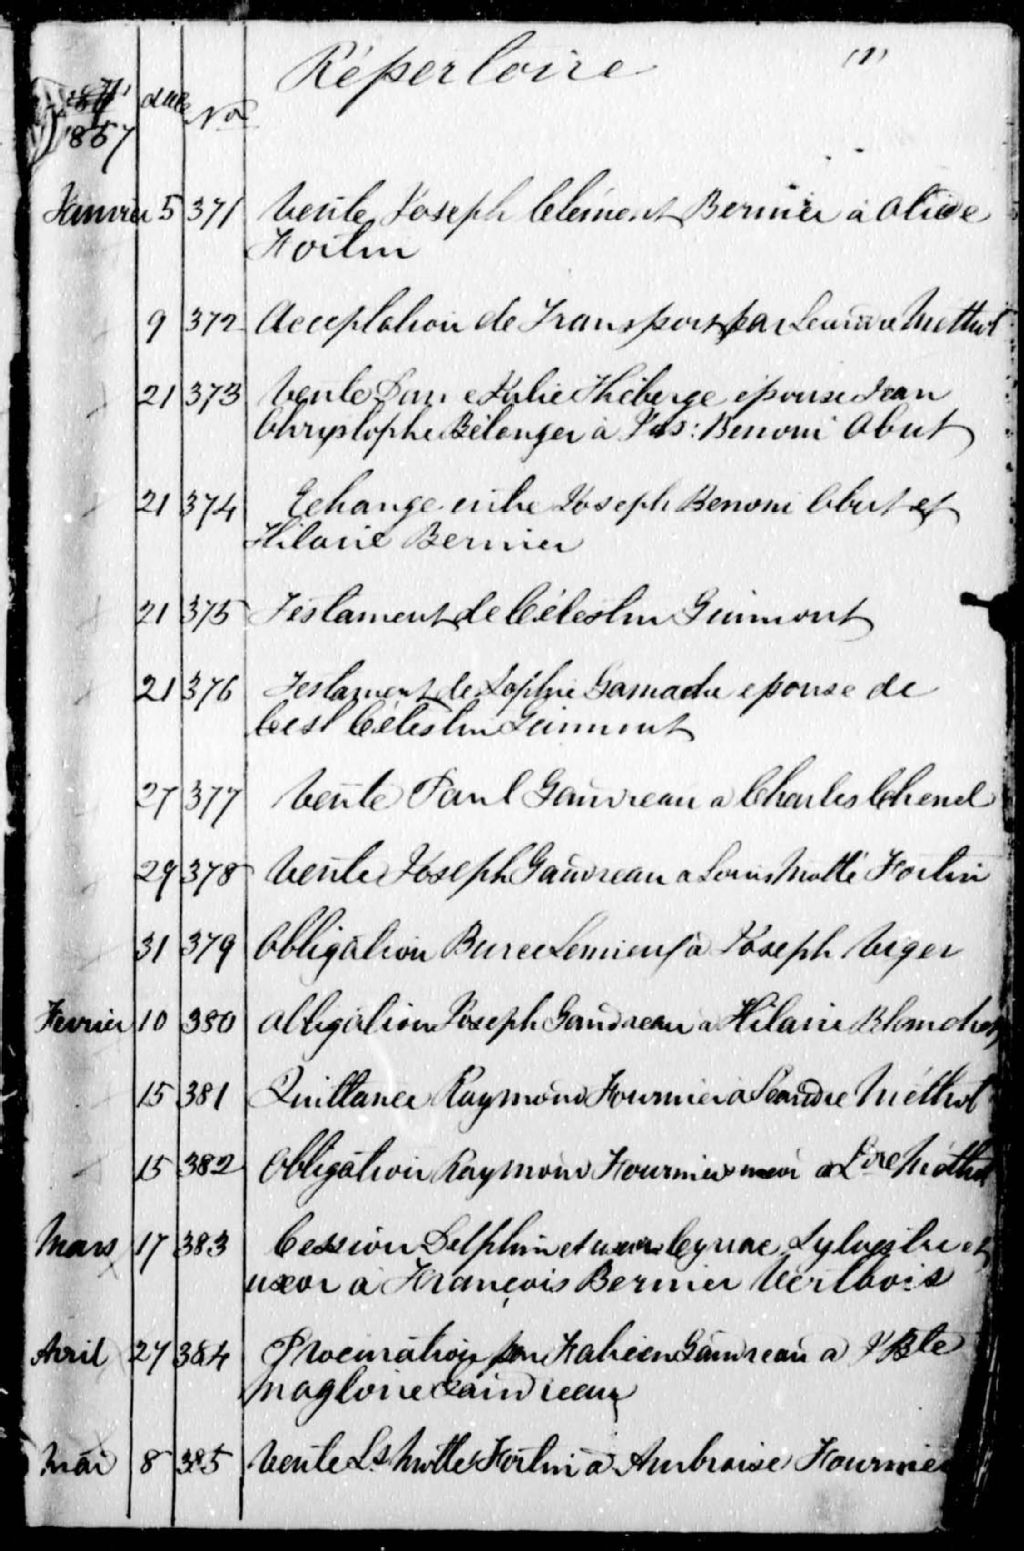 Répertoire (1)
date No
1857
Janvier 5 371 Vente Joseph Clément Bernier à Olive
Fortin
9 372 Acceptation de Transport par Leandre Methot
21 373 Vente Dame Julie Théberge épouse Jean
Chrystophe Bélanger à Jos: Benoni Cbut
21 374 Echange entre Joseph Benoni Cbut et
Hilaire Bernier
21 375 Testament de Célestin Guimont
21 376 Testament de Sophie Gamache epouse de
Célestin Guimont
27 377 Vente Paul Gaudreau a Charles Chenel
29 378 Vente Joseph Gaudreau a Louis Motté Fortin
31 379 Obligation Lemieux à Joseph Viger
Fevrier 10 380 Obligation Joseph Gaudreau a Hilaire Blanchet
15 381 Quittance Raymond Fournier a Leandre Méthot
15 382 Obligation Raymond Fournier a Méthot
Mars 17 383 Cession Delphin et uxor Sylvestre et
uxor à François Bernier Verbois
Avril 27 384 Procuration par Fabien Gaudreau a J Bte
Magloire Gaudreau
Mai 8 385 Vente Ls Motté Fortin a Ambroise Fournier